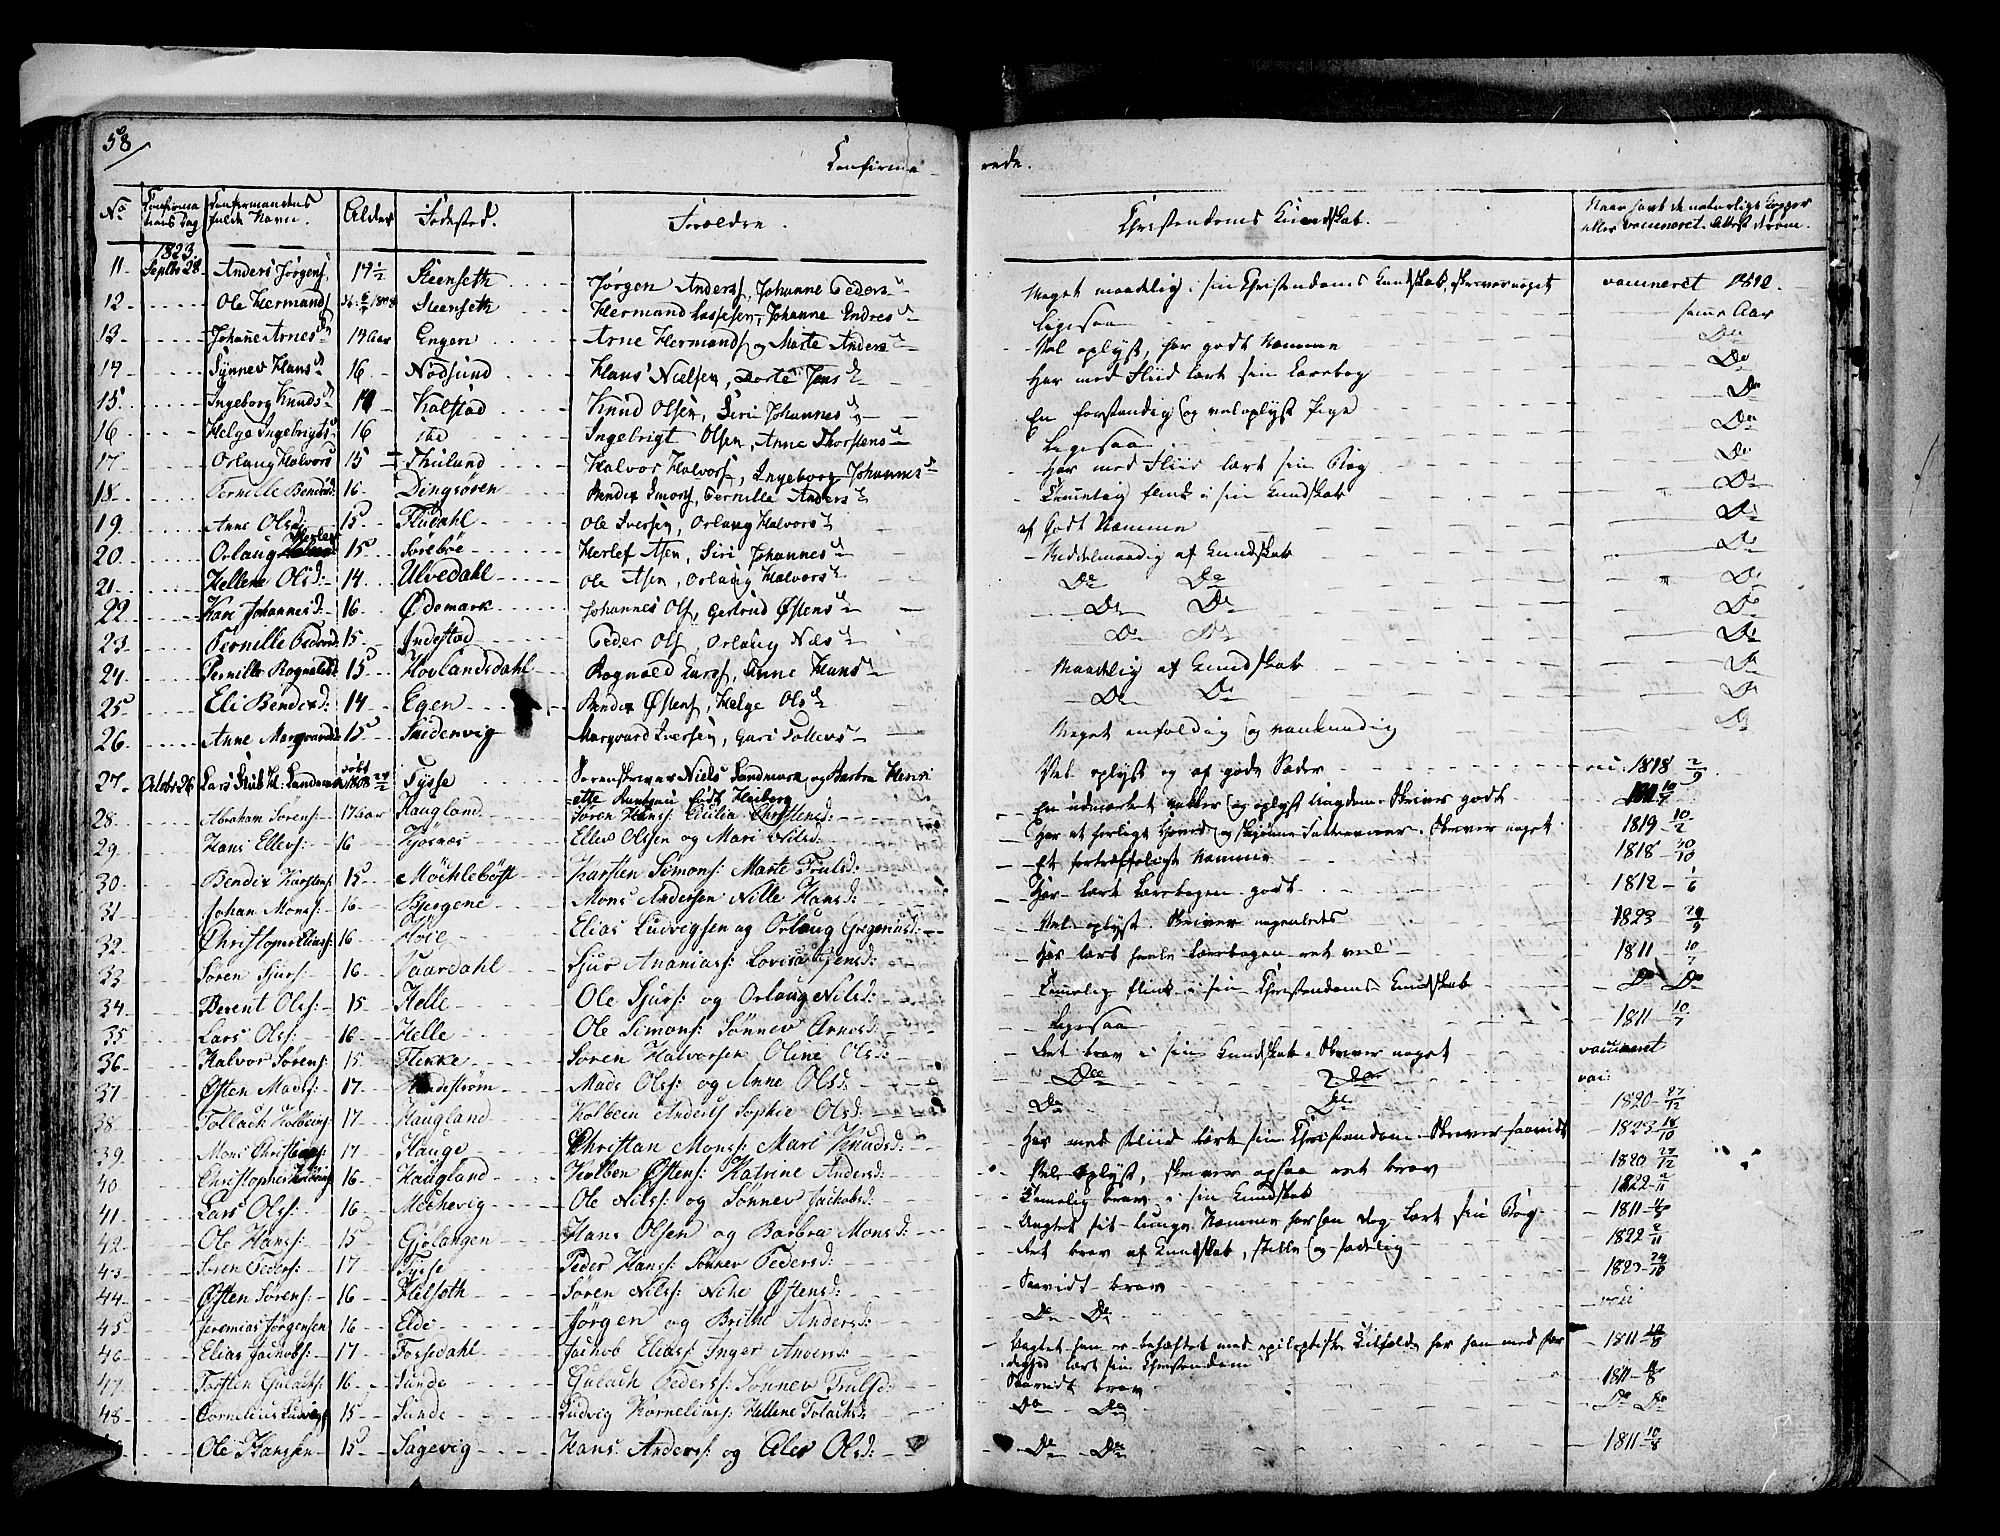 58
Confirma rede.
No Confirmationsdag Confirmandens fulde Navn. Alder Födested. Forældre. Christendoms Kundskab. Naar havt de naturlige Kopper eller vaccineret
1823
11 Septbr 28 Anders Jørgens. 14 1/2 Steenseth Jørgen Anderss, Johanne Peders Meget maadelig i sin Christendoms Kundskab, skriver noget vaccineret 1812
12 Ole Hermands Steenseth Hermand Lassesen, Johanne Endres Ligesaa samme Aar
13 Johane Arnes 14 Aar Engen Arne Hermands og Marte Anders Vel oplyst, har godt Nemme Do
14 Synnev Hans 16 Nödsund Hans Nielsen, Dorte Jens Har med Fliid lært sin Lærebog Do
15 Ingeborg Knuds Kalstad Knud Olsen, Siri Johannes En forstandig og veloplyst Pige Do
16 Helge Ingebrigts 16 ibd Ingebrigt Olsen, Anne Thorstens Ligesaa Do
17 Orlaug Halvors 15 Thulund Halvor Halvors, Ingeborg Johannes Har med Fliid lært sin Bog Do
18 Pernille Bendixd: 16 Dingsøren Bendix Simons, Pernille Anders Temmelig flink i sin Kundskab Do
19 Anne Olsd 15 Flüdahl Ole Iversen, Orlaug Halvors af Godt Nemme Do
20 Orlaug Herlefs 15 Sörebøe Herlef Assen, Siri Johannes Meddelmaadig af Kundskab Do
21 Hellene Olsd: 14 Ulvedahl Ole Assen, Orlaug Halvors Do Do Do
22 Kari Johannesd: 16 Ødemark Johannes Ols, Gertrud Østens Do Do Do
23 Pernille Pedersd 15 Indestad Peder Ols, Orlaug Næs Do Do Do
24 Pernille Rognaldsd 15 Hovlandsdahl Rognald Larss, Anne Hans Maadelig af Kundskab Do
25 Eli Bendixd: 14 Egen Bendix Østens, Helge Ols Do Do Do
26 Anne Margvards 15 Snidenvig Margvard Iversen, Guri Tollevs Meget enfoldig og vankundig Do
27 Octobr 26 Lars Landmark födt 1808 Tysse Sorenskriver Niels Landmark og Barbra Henri Vel oplyst og af gode Sæder vac: 1818 2/9
ette födt Heiberg
28 Abraham Sörens: 17 Aar Haugland Søren Hans: Cicilia Christensd: En udmærket vakker og oplyst Ungdom. Skriver godt 1811 10/7
29 Hans Ellers: 16 Hjösnæs Eller Olssen og Mari Nilsd: Har et herligt Hoved og skjønne Sattevner. Skriver noget 1819 10/2
30 Bendix Karstens: 15 Möchleböst Karsten Simons: Marte Trulsd: Et fortræffeligt Nemme 1818 30/10
31 Johan Mons: 16 Bjergene Mons Andersen Nille Hansd: Har lært Lærebogen godt 1812 1/6
32 Christopher Elias: 16 Höie Elias Ludvigsen og Orlaug Gregeriusd: Vel oplyst. Skriver 1823
33 Sören Sjurs: 16 Vaardahl Sjur Ananiass: Lovisa Jensd: Har lært heele Lærebogen ret vel 1811 10/7
34 Berent Ols: 15 Helle Ole Sjurs: og Orlaug Nilsd: Temelig flink i sin Christendoms Kundskab Do Do
35 Lars Ols: 16 Helle Ole Simons: Sönnev Arnesd: Ligesaa 1811 10/7
36 Halvor Sørens: 15 Flekke Søren Halvorsen Oline Olsd: Ret brav i sin Kundskab. Skriver noget vaccineret
37 Østen Mads: 17 Mads Ols: og Anne Olsd: Do Do vac:
38 Tollach Kolbeins 17 Haugland Kolbein Anders Sophie Olsd: Do Do 1820 27/12
39 Mons Christians: 17 Hauge Christan Mons: Mari Knudsd: Har med Fliid lært sin Christendom. Skriver saavidt 1823 18/10
40 Christopher 16 Haugland Kolben Østens: Katrine Andersd: Vel oplyst, skriver ogsaa ret brav 1820 27/12
41 Lars Ols: 16 Mechevig Ole Nils: og Sönnev Jachobsd: Temelig brav i sin Kundskab 1822 2/11
42 Ole Hans: 15 Gjølangen Hans Olsen og Barbra Monsd: Uagtet sit tunge Nemme har han dog lært sin Bog 1811
43 Sören Peders: 17 Tysse Peder Hans: Sönnev Pedersd: Ret brav af Kundskab, stille og sædelig 1822 2/11
44 Østen Sørens: 16 Helseth Søren Nils: Østensd: Saavidt brav 1823
45 Jeremias Jørgensen 16 Elde Jørgen og Brithe Andersd: Do Do
46 Elias Jachobs: 17 Fossedahl Jachob Elias: Inger Andersd: Uagtet han er behæftet med epileptiske Tilfælde har han med Før 1811
dighed lært sin Christendom
47 Torsten Gulachs: 16 Sunde Gulach Peders: Sönnev Trulsd: Saavidt brav 1811
48 Cornelius Ludvigs 15 Sunde Ludvig Kornelius: Hellene Tolachsd: Do Do Do Do
Ole Hanssen 15 Sagevig Hans Anders: og Olsd: Do Do 1811 10/8